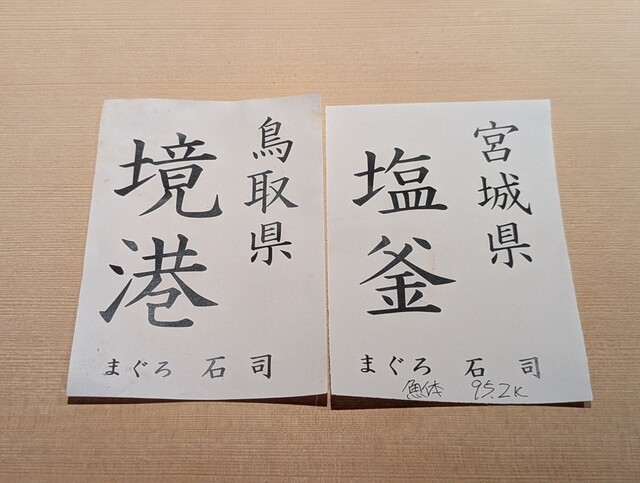 鳥取県
境港
まぐろ 石司
宮城県
塩釜
まぐろ 石司
魚体 95.2K